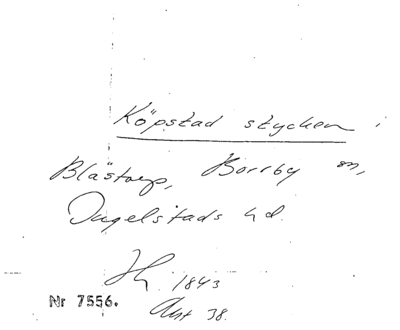 Köpstad stycken i
Blästorp, Borrby sn,
Ingelstads hd.
1843
Nr 7556.
Akt 38.